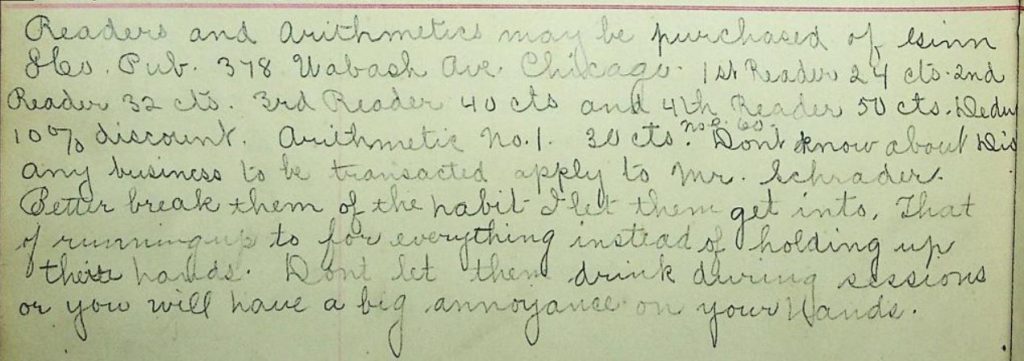 Readers and Arithmetics may be purchased of Ginn
& Co. Pub. 378 Wabash Ave. Chicago. 1st Reader 24 cts. 2nd
Reader 32 cts. 3rd Reader 40 cts and 4th Reader 50 cts. Dedu
10% discount. Arithmetic No. 1. 30 cts. No 2. 60. Dont know about Dis
Any business to be transacted apply to Mr. Schrader.
Better break them of the habit I let them get into. That
of running up to for everything instead of holding up
their hands. Dont let them drink during sessions
or you will have a big annoyance on your Hands.